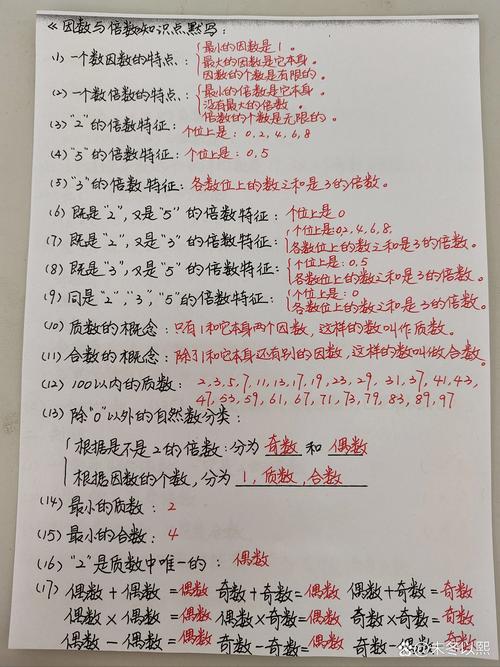 《因数与倍数知识点默写:
(1) 一个数因数的特点: 最小的因数是1。
最大的因数是它本身。
因数的个数是有限的。
(2) 一个数倍数的特点: 最小的倍数是它本身。
没有最大的倍数。
倍数的个数是无限的。
(3) "2"的倍数特征: 个位上是: 0,2,4,6,8
(4) "5"的倍数特征: 个位上是: 0,5
(5) "3"的倍数特征: 各数位上的数之和是3的倍数。
(6) 既是"2",又是"5"的倍数特征: 个位上是0
(7) 既是"2",又是"3"的倍数特征: 个位上是:0,2,4,6,8.
各数位上的数之和是3的倍数。
(8) 既是"3",又是"5"的倍数特征: 个位上是: 0.5
各数位上的数之和是3的倍数。
(9) 同是"2","3","5"的倍数特征: 个位上是: 0
各数位上的数之和是3的倍数。
(10) 质数的概念: 只有1和它本身两个因数,这样的数叫作质数。
(11) 合数的概念: 除了1和它本身还有别的因数,这样的数叫做合数。
(12) 100以内的质数: 2,3,5,7,11,13,17,19,23,29, 31,37,41,43,
47,53,59,61,67,71,73,79,83,89,97
(13) 除"0"以外的自然数分类:
根据是不是2的倍数:分为 奇数 和 偶数
根据因数的个数,分为 1,质数,合数
(14) 最小的质数: 2
(15) 最小的合数: 4
(16) "2"是质数中唯一的: 偶数
(17) 偶数+偶数=偶数 奇数+奇数=偶数 偶数+奇数=奇数
偶数×偶数=偶数 偶数×奇数=偶数 奇数×奇数=奇数
偶数-偶数=偶数 奇数-奇数=偶数 奇数-偶数=奇数
知乎 @未冬以熙